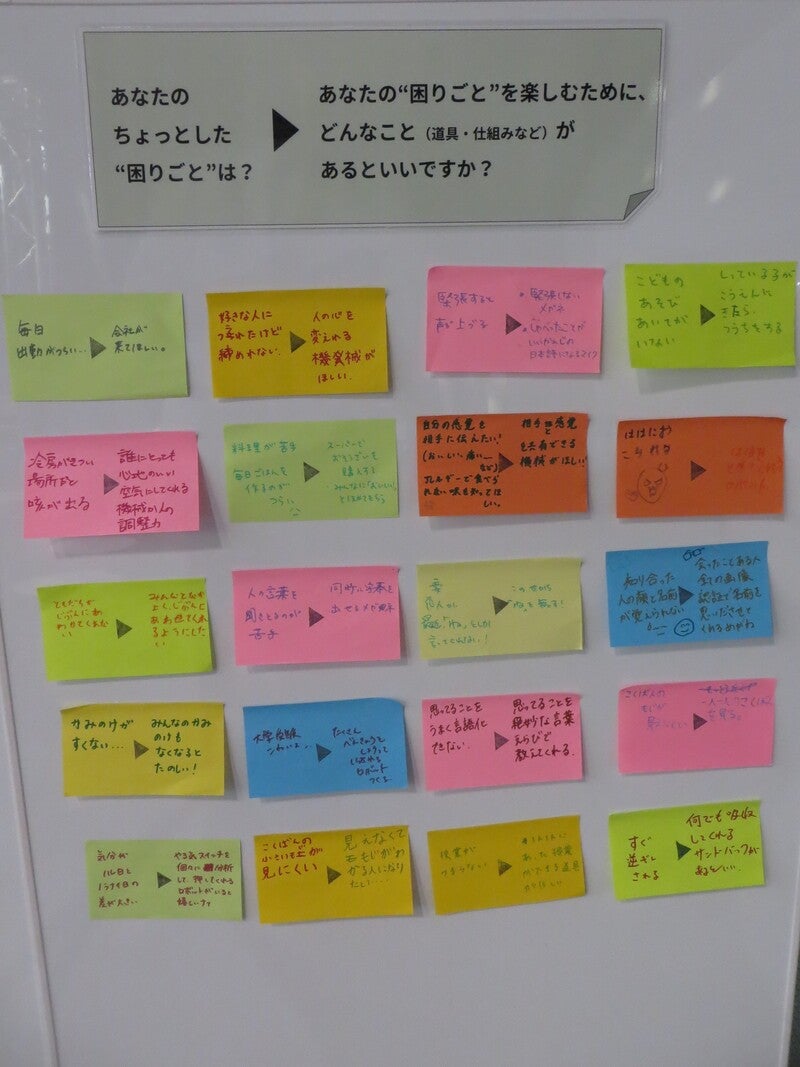 あなたの
ちょっとした
“困りごと”は？
あなたの“困りごと”を楽しむために、
どんなこと（道具・仕組みなど）が
あるといいですか？
毎日
出勤がつらい…
会社が
来てほしい。
好きな人に
忘れたけど
諦めれない
人の心を
変えれる
機械が
ほしい
緊張すると
声が上づる
緊張しない
メガネ
しゃべったことが
いいかんじの
日本語になるマイク
こどもの
あそび
あいてが
いない
しっている子が
こうえんに
きたら、
つうちをする
冷房がきつい
場所だと
咳が出る
誰にとっても
心地のいい
空気にしてくれる
機械か人の
調整力
料理が苦手
毎日ごはんを
作るのが
つらい
スーパーで
おそうざいを
購入する
みんなに「おいしい」
とほめてもらう
自分の感覚を
相手に伝えたい!
(おいしい、痛い…
など)
アレルギーで食べら
れない味も知ってほ
しい。
相手と感覚
を共有できる
機械がほしい!
ははにお
こられる
ともだちが
じぶんにあ
わせてくれな
い
みんなとなか
よく、じぶんに
あわせてくれ
るようにした
い
人の言葉を
聞きとるのが
苦手
同時に字幕を
出せるメガネ
言ってくれない!
この世から
知り合った
人の顔と名前
が覚えられない
会ったことある人
全ての画像
認証で名前を
思いださせて
くれるめがね
かみのけが
すくない…
みんなのかみ
のけも
なくなると
たのしい!
大学受験
こわいよ、
たくさん
べんきょうを
しようって
いってくれる
ロボット
つくる
思ってることを
うまく言語化
できない
思ってることを
絶妙な言葉
えらびで
教えてくれる。
こくばんの
もじが
見にくい
一人一つこくばん
を見る。
気分が
ハレ日と
ノラナイ日の
差が大きい
やる気スイッチを
個々に分析
して、押してくれる
ロボットがいると
嬉しいナァ
こくばんの
小さいもじが
見にくい
見えなくて
ももじがわ
かる人になり
たい
授業が
つまらない
あった授業
ができる道具
がほしい
すぐ
逆ギレ
される
何でも吸収
してくれる
サンドバックが
あるといい